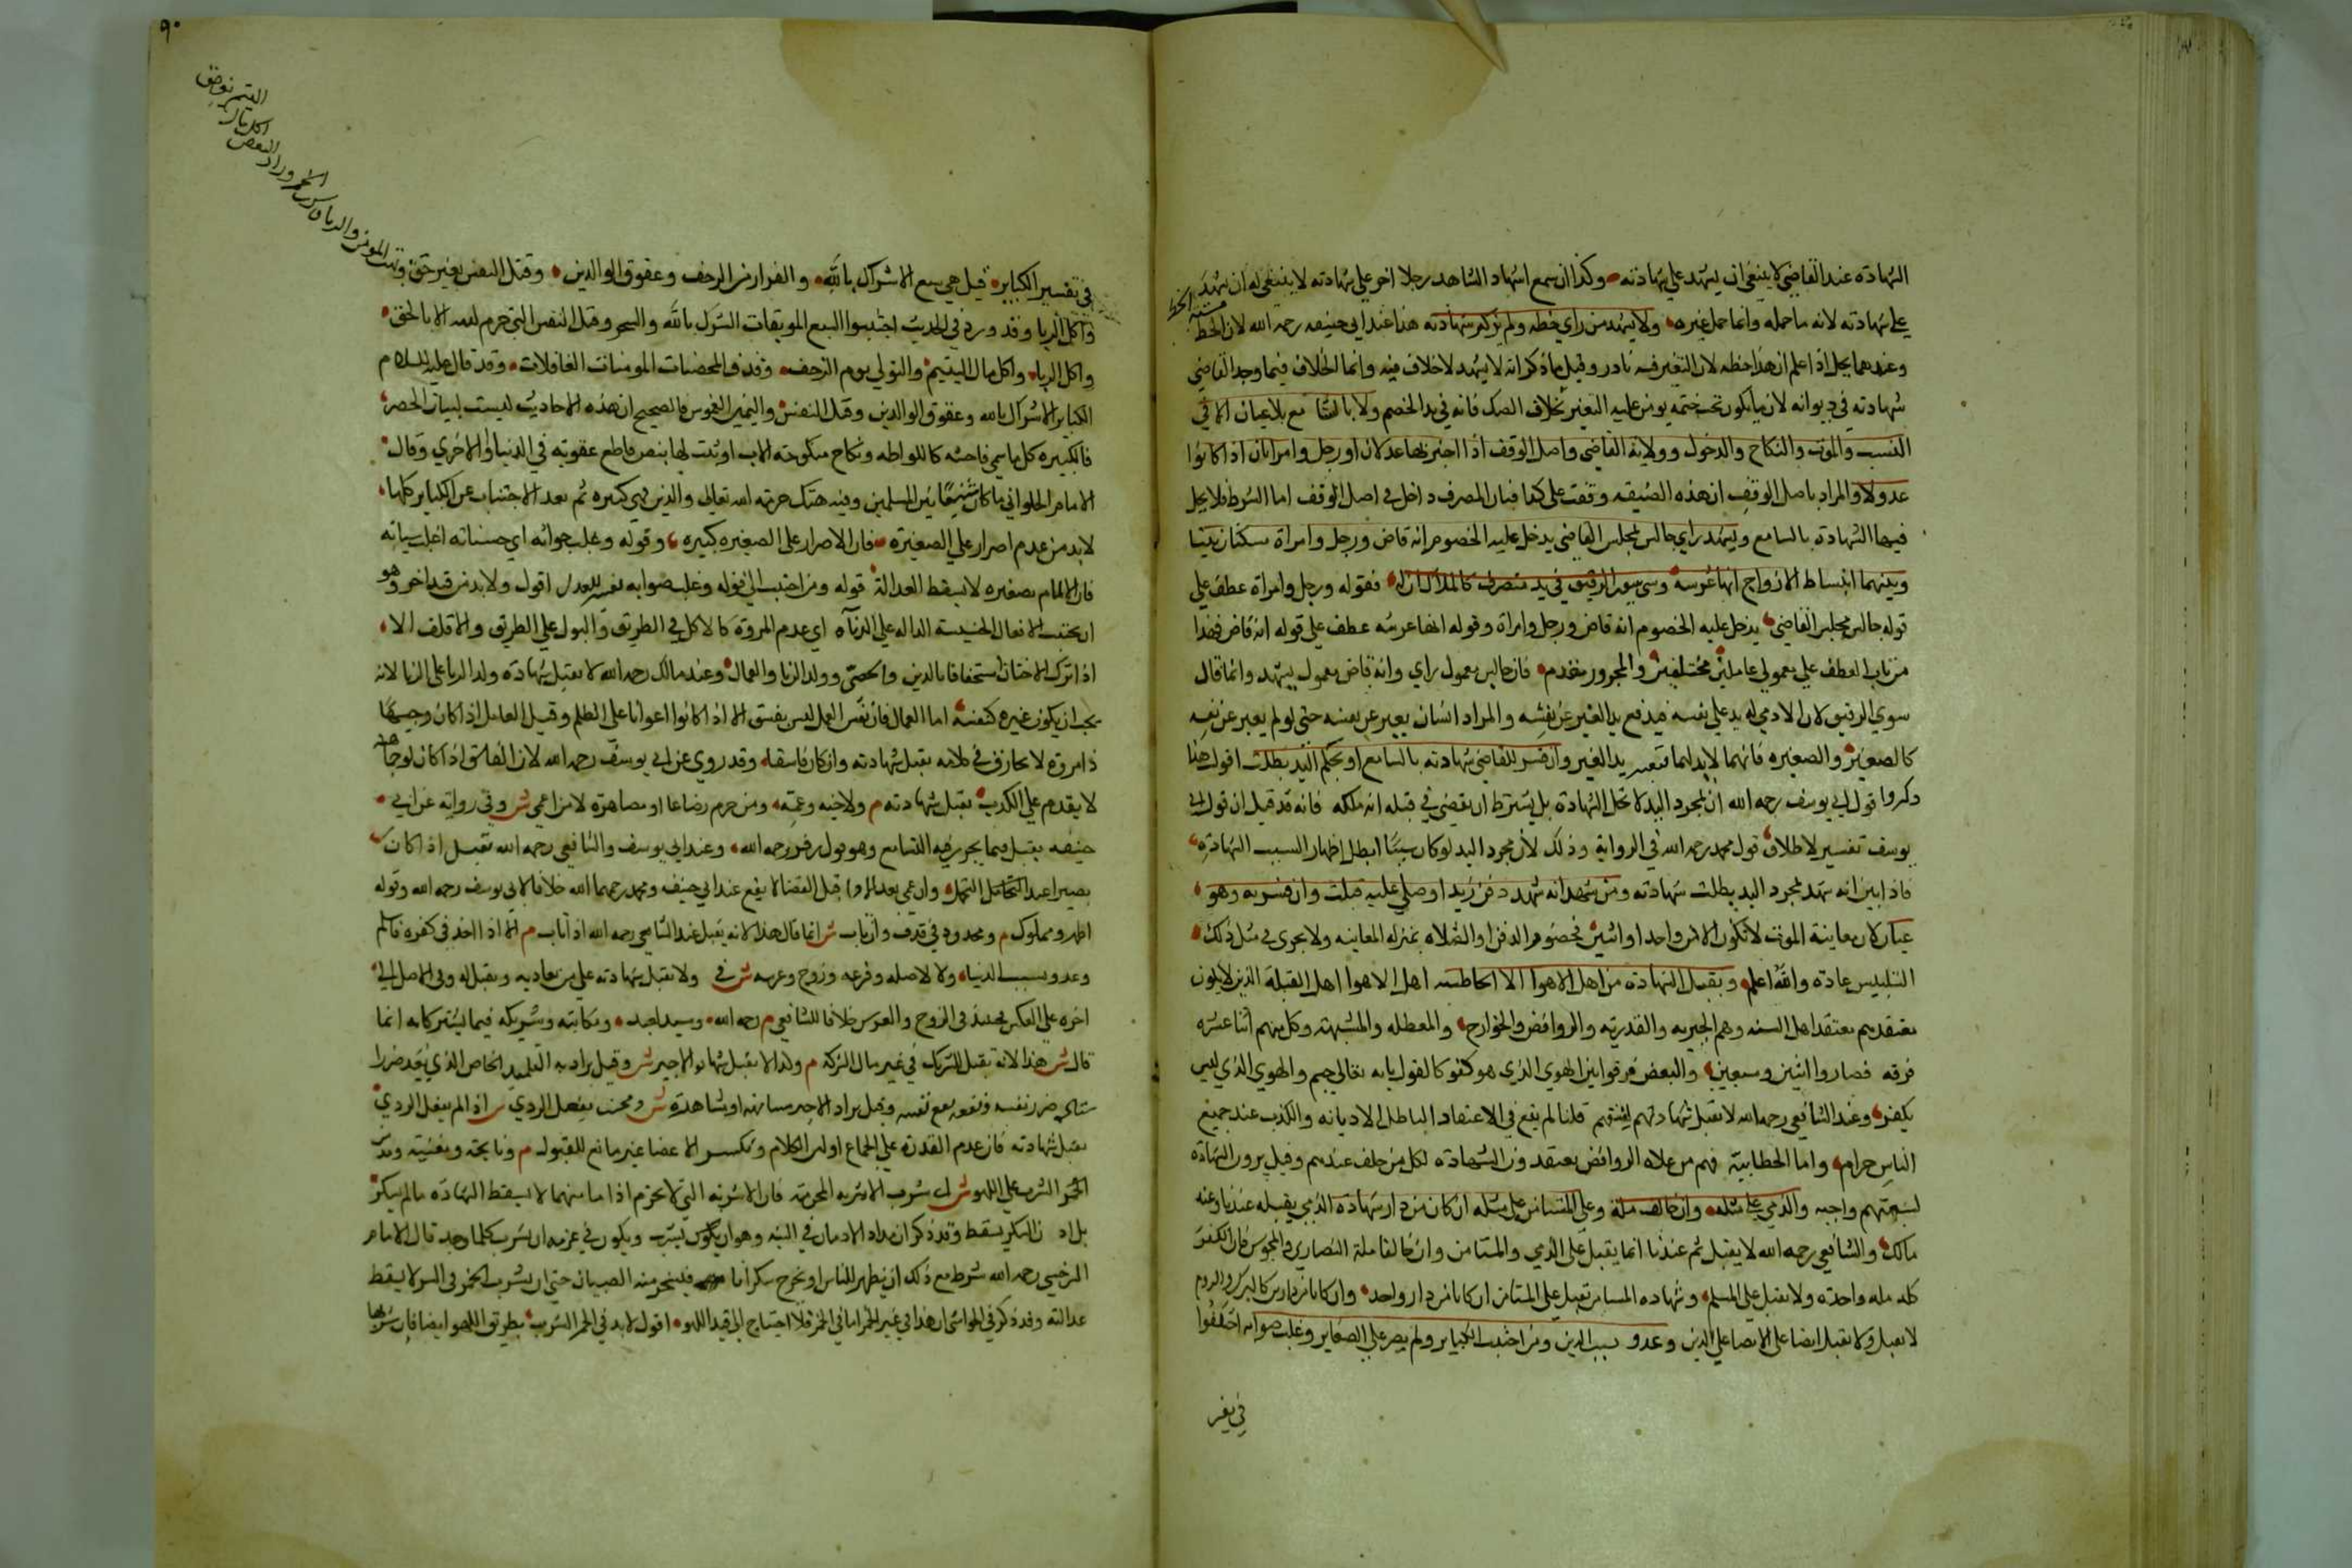 الشهادة عند القاضي لا ينبغي ان يشهد علي شهادته وكذا ان سمع اشهاد الشاهد رجلا اخر علي شهادته لا ينبغي له ان يشهد
علي شهادته لانه ما حمله وانما حمل غيره ولا يشهد من راي خطه ولم يذكر شهادته هذا عند ابي حنيفه رحمه الله لان الخط
وعندهما يحل اذا علم ان هذا خطه لان التغير فيه نادر وقيل ما ذكر انه لا يشهد لا خلاف فيه وانما الخلاف فيما وجد القاضي
شهادته في ديوانه لان ما يكون تحت ختمه يومن عليه التغير بخلاف الصك فانه في يد الخصم ولا بالتسامع بلا عيان الا في
النسب والموت والنكاح والدخول وولاية القاضي واصل الوقف اذا اخبر بها عدلان او رجل وامراتان اذا كانوا
عدولا والمراد باصل الوقف ان هذه الضيعه وقفت علي كذا فبيان المصرف داخل في اصل الوقف اما الشرط فلا يحل
فيها الشهادة بالتسامع ويشهد راي جالس مجلس القاضي يدخل عليه الخصوم انه قاض ورجل وامراة يسكنان بيتا
وبينهما انبساط الازواج انها عرسه وشي سوي الرقيق في يد متصرف كالملاك انه له فقوله ورجل وامراة عطف علي
قوله جالس مجلس القاضي يدخل عليه الخصوم انه قاض ورجل وامراة وقوله انها عرسه عطف علي قوله انه قاض فهذا
من باب العطف علي معمولي عاملين مختلفين والمجرور مقدم فان جالس معمول راي وانه قاض معمول يشهد وانما قال
سوي الرقيق لان الادمي له يد علي نفسه فيدفع يد الغير عن نفسه والمراد انسان يعبر عن نفسه حتي لو لم يعبر عن نفسه
كالصغير والصغيره فانهما لا يد لهما فتعتبر يد الغير وان فسر للقاضي شهادته بالتسامع او بحكم اليد بطلت اقول هذا
ذكروا قول ابي يوسف رحمه الله ان مجرد اليد لا تحل الشهادة بل يشترط ان يقضي في قلبه انه ملكه فانه قد قيل ان قول ابي
يوسف تفسير لاطلاق قول محمد رحمه الله في الرواية وذلك لان مجرد اليد لو كان سببا ابطل اظهار السبب الشهادة
فاذا بين انه شهد لمجرد اليد بطلت شهادته ومن شهد انه شهد دفن زيد او صلي عليه قبلت وان فسر به وهو
عيان لان معاينة الموت لا تكون الا من واحد او اثنين فحضور الدفن او الصلاه بمنزله المعاينه ولا يجري في مثل ذلك
التلبيس عادة والله اعلم وتقبل الشهادة من اهل الاهوا الا الخطابيه اهل الاهوا اهل القبلة الذين لا يكون
معتقدهم معتقد اهل السنه وهم الجبريه والقدريه والروافض والخوارج والمعطله والمشبهة وكل منهم اثنا عشره
فرقه فصاروا اثنين وسبعين والبعض فرقوا بين الهوي الذي هو كفر كالقول بانه تعالي جسم والهوي الذي ليس
بكفر وعند الشافعي رحمه الله لا تقبل شهادتهم لفسقهم قلنا لم يقع في الاعتقاد الباطل الا ديانه والكذب عند جميع
الناس حرام واما الخطابية فهم من غلاة الروافض يعتقدون الشهادة لكل من حلف عندهم وقيل يرون الشهادة
لشيعتهم واجبه والذمي علي مثله وان خالف ملة وعلي المستامن والمستامن علي مثله ان كان من دار شهادة الذمي يقبله عندنا وعند
مالك والشافعي رحمه الله لا يقبل ثم عندنا انما يقبل علي الذمي والمستامن وان خالفا ملة النصاري والمجوس فان الكفر
كله مله واحده ولا تقبل علي المسلم وشهاده المستامن تقبل علي المستامن ان كانا من دار واحد وان كانا من دارين كالترك والروم
لا تقبل ولا تقبل ايضا علي الذمي وعدو بسبب الدين ومن اجتنب الكبائر ولم يصر علي الصغاير وغلب صوابه اختلفوا
في تفسير
في تفسير الكبائر قيل هي سبع الاشراك بالله والفرار من الزحف وعقوق الوالدين وقتل النفس بغير حق وبهت المومن والزنا وشرب الخمر وزاد البعض
اكل مال اليتيم
واكل الربا وقد ورد في الحديث اجتنبوا السبع الموبقات الشرك بالله والسحر وقتل النفس التي حرم الله الا بالحق
واكل الربا واكل مال اليتيم والتولي يوم الزحف وقذف المحصنات المومنات الغافلات وقد قال عليه السلام
الكبائر الاشراك بالله وعقوق الوالدين وقتل النفس واليمين الغموس فالصحيح ان هذه الاحاديث ليست لبيان الحصر
فالكبيره كل ما سمي فاحشه كاللواطه ونكاح منكوحة الاب او ثبت لها بنص قاطع عقوبته في الدنيا او الاخري وقال
الامام الحلواني ما كان شنيعا بين المسلمين وفيه هتك حرمة الله تعالي والدين فهي كبيره ثم بعد الاجتناب عن الكبائر كلها
لا بد من عدم اصرار علي الصغيرة فان الاصرار علي الصغيره كبيره وقوله وغلب صوابه اي حسناته اغلب سياته
فان الالمام بصغيره لا يسقط العدالة قوله ومن اجتنب الي قوله وغلب صوابه تفسير للعدل اقول ولا بد من قيد اخر وهو
ان يجتنب الافعال الخسيسة الداله علي الدناة اي عدم المروة كالاكل في الطريق والبول علي الطريق والاقلف الا
اذا ترك الاختتان استخفافا بالدين والخصي وولد الزنا والعمال وعند مالك رحمه الله لا تقبل شهادة ولد الزنا علي الزنا لانه
يحب ان يكون غيره كنفسه اما العمال فان نفس العمل ليس بفسق الا اذا كانوا اعوانا علي الظلم وقيل العامل اذا كان وجيها
ذا مروة لا يجازف في كلامه تقبل شهادته وان كان فاسقا وقد روي عن ابي يوسف رحمه الله لان الفاسق اذا كان لوجاهته
لا يقدم علي الكذب تقبل شهادته م ولاخيه وعمه ومن حرم رضاعا او مصاهرة لا من اعمي ش وفي رواية عن ابي
حنيفه تقبل فيما يجري فيه التسامع وهو قول زفر رحمه الله وعند ابي يوسف والشافعي رحمه الله تقبل اذا كان
بصيرا عند التحمل وان عمي بعد الاداء قبل القضا لا يقع عند ابي حنيفه ومحمد رحمهما الله خلافا لابي يوسف رحمه الله وقوله
اظهر ومملوك م ومحدود في قذف وان تاب ش انما قال هذا لانه يقبل عند الشافعي رحمه الله اذا تاب م الا اذا حد في كفره فاسلم
وعدو بسبب الدنيا ولا لاصله وفرعه وزوج وعرسه ش في ولا تقبل شهادته علي من يعاديه وتقبل له وفي الاصل الي
اخره علي العكس فحينئذ في الزوج والعرس خلافا للشافعي م رحمه الله وسيد لعبده ومكاتبه وشريكه فيما يشتركانه انما
قال ش هذا لانه تقبل للشريك في غير مال الشركة م ولذا لا تقبل شهادة الاجير ش وقيل يراد به التلميذ الخاص الذي يعد ضرر
استاذه ضرر نفسه ونفعه نفع نفسه وقيل يراد الاجير مسانهة او مشاهرة ش ومخنث يفعل الردي ش اذ لم يفعل الردي
تقبل شهادته فان عدم القدرة علي الجماع او لين الكلام وتكسر الاعضا غير مانع للقبول م ونايحة ومغنيه ومد
من الشرب علي اللهو ش اي شرب الاشربه المحرمة فان الاشربه التي لا تحرم ادمانها لا يسقط الشهادة ما لم يسكر
السكر يسقط وقد ذكر ان مراد الادمان في النية وهو ان يكون في عزمه ان يشرب كلما وجد قال الامام
السرخسي رحمه الله شرط مع ذلك ان يظهر للناس او يخرج سكرانا فيسخر منه الصبيان حتي ان شرب الخمر في السر لا يسقط
عدالته وقد ذكر في الحواشي ان هذا في غير الخمر اما في الخمر فلا احتياج الي قيد اللهو اقول لا بد في الخمر الشرب بطريق اللهو ايضا فان شربها